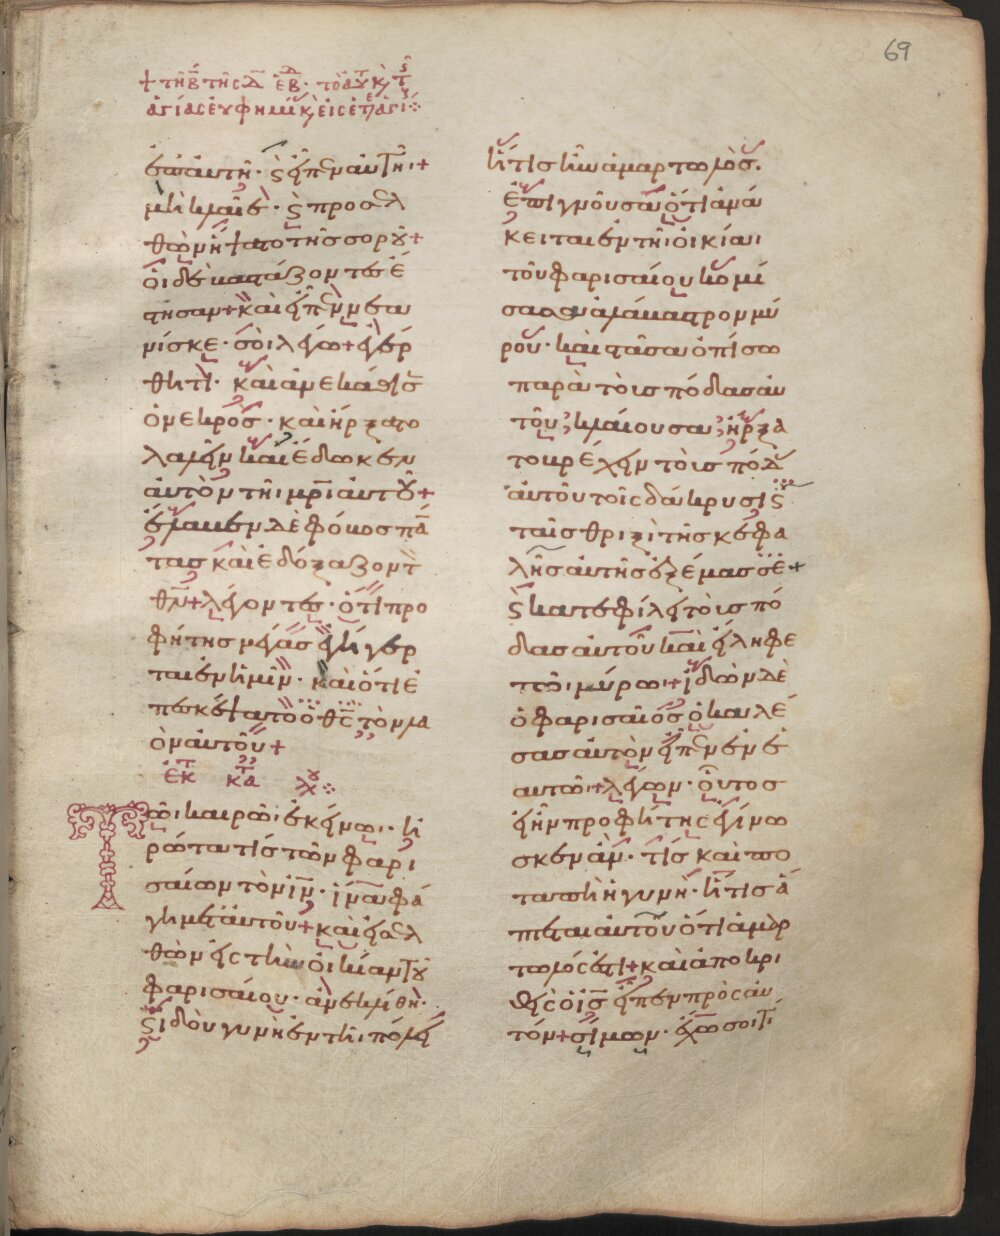 69
+ τῆ β̄ τῆς δ̄ ἑβδ. τοῦ αὐτ κ, τ
ἁγίας εὐφημίας κ, εἰς ἑτέρ ἁγί
ἐπ αὐτῆ· ϛ εἶπεν αὐτῆ·+
μὴ κλαῖε· ϛ προσελ
θὼν ἥψατο τῆς σοροῦ+
οἱ δὲ βαστάζοντες ἔ
στησαν+ καὶ εἶπεν νεα
νίσκε· σοὶ λέγω+ ἐγέρ
θητι· καὶ ἀνεκάθισεν
ὁ νεκρός· καὶ ἤρξατο
λαλεῖν καὶ ἔδωκεν
αὐτὸν τῆι μρὶ αὐτοῦ+
ἔλαβεν δὲ φόβος πᾶ
τας καὶ ἐδόξαζον τ
θν+ λέγοντες· ὅτι προ
φήτης μέγας ἐγήγερ
ται ἐν ἡμῖν· καὶ ὅτι ἐ
πεσκέψατο ὁ θς τὸν λα
ὸν αὐτοῦ+
ἐκ τ κτ λχ
Τῶι καιρῶι ἐκείνωι· ἠ
ρώτα τίς τῶν φαρι
σαίων τὸν ιν· ἵνα φά
γη μετ αὐτοῦ+ καὶ εἰσελ
θὼν εἰς τὴν οἰκίαν τοῦ
φαρισαίου· ἀνεκλίθη·
ϛ ἰδοὺ γυνὴ ἐν τῆι πόλει
ἥτις ἦν ἁμαρτωλός.
ἐπιγνοῦσα ὅτι ἀνά
κειται ἐν τῆι οἰκίαι
τοῦ φαρισαίου κομί
σασα ἀλάβαστρον μύ
ρου· καὶ στᾶσα ὀπίσω
παρὰ τοὺς πόδας αὐ
τοῦ, κλαίουσα, ἤρξα
το βρέχειν τοὺς πόδ
αὐτοῦ τοῖς δάκρυσι ϛ
ταῖς θριξὶ τῆς κεφα
λῆς αὐτῆς ἐξέμασσε+
ϛ κατεφίλει τοὺς πό
δας αὐτοῦ καὶ ἤλειφε
τῶι μύρωι+ ἰδὼν δὲ
ὁ φαρισαῖος ὁ καλέ
σας αὐτὸν εἶπεν ἐν ἑ
αυτῶι+ λέγων· οὗτος
εἰ ἦν προφήτης ἐγίνω
σκεν ἄν· τίς καὶ πο
ταπὴ ἡ γυνὴ· ἥτις ἅ
πτεται αὐτοῦ ὅτι ἁμαρ
τωλός ἐστι+ καὶ ἀποκρι
θεὶς ὁ ις εἶπεν πρὸς αὐ
τόν+ σίμων· ἔχω σοι τι